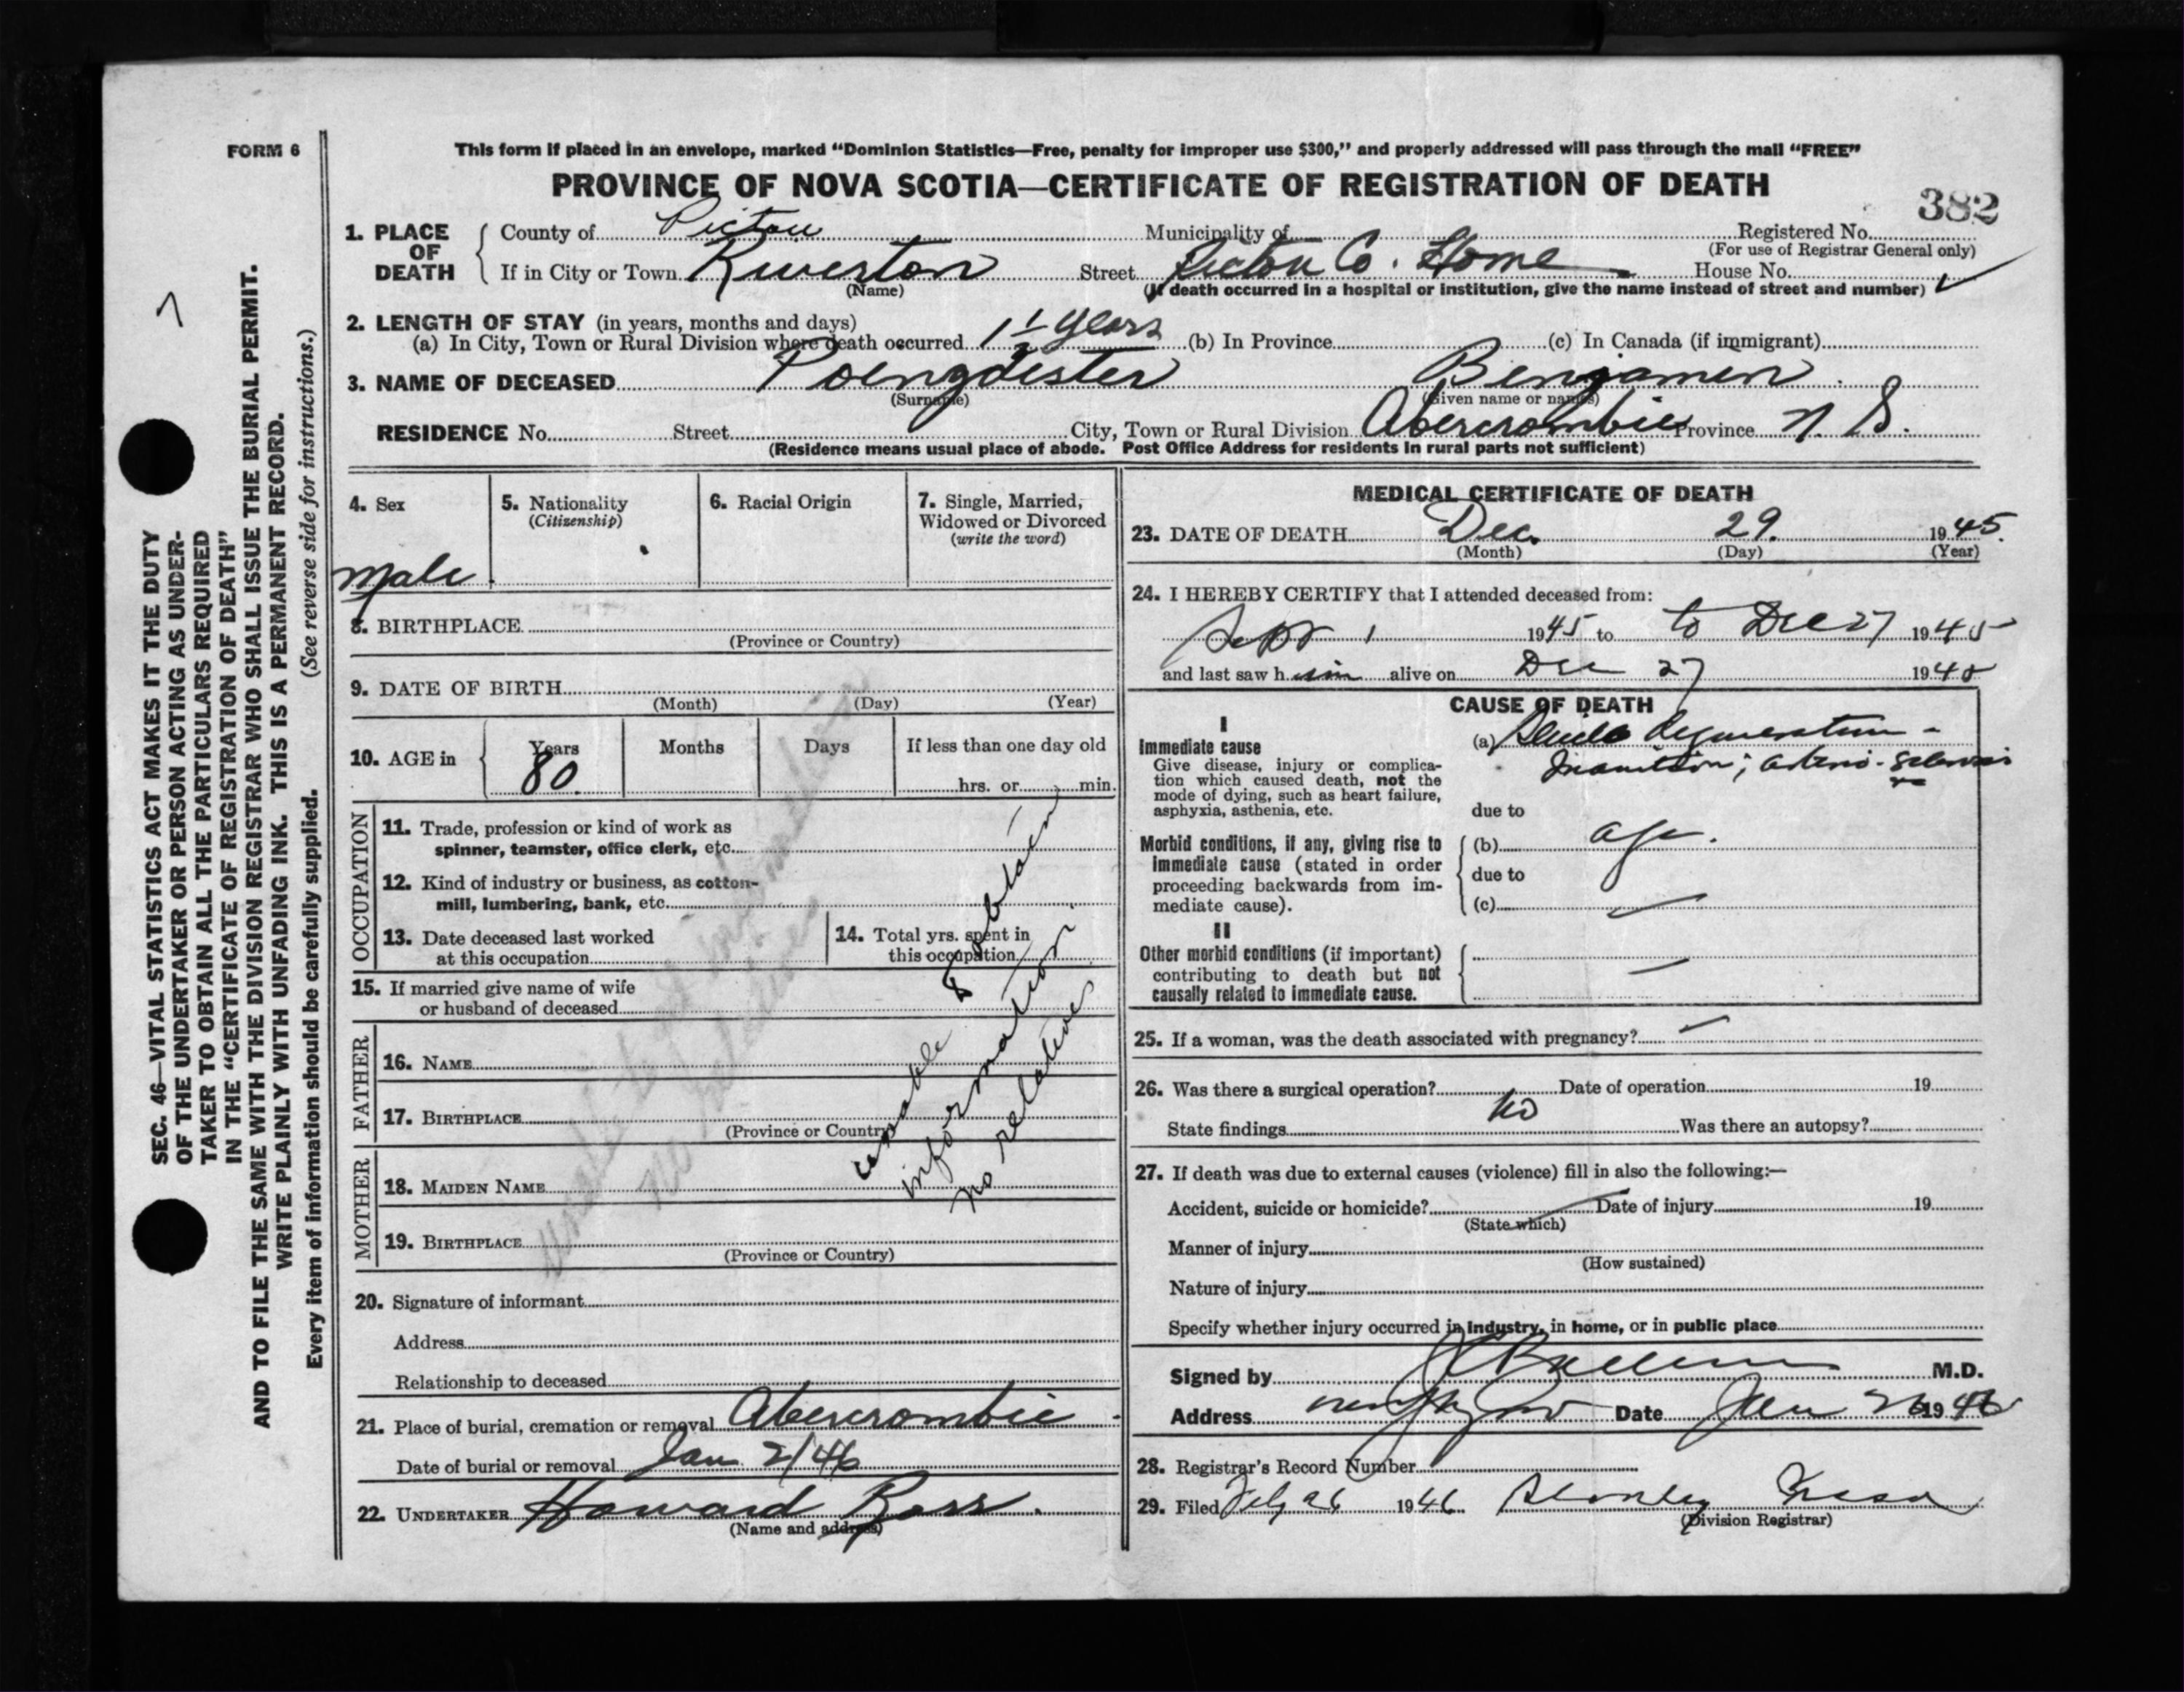 FORM 6
This form if placed in an envelope, marked "Dominion Statistics—Free, penalty for improper use $300," and properly addressed will pass through the mail "FREE"
PROVINCE OF NOVA SCOTIA—CERTIFICATE OF REGISTRATION OF DEATH
382
1. PLACE OF DEATH
County of Pictou Municipality of Registered No.
(For use of Registrar General only)
If in City or Town Riverton Street Pictou Co. Home House No.
(Name) (If death occurred in a hospital or institution, give the name instead of street and number)
2. LENGTH OF STAY (in years, months and days)
(a) In City, Town or Rural Division where death occurred 1 1/2 years (b) In Province (c) In Canada (if immigrant)
3. NAME OF DECEASED Poengdester Benjamen
(Surname) (Given name or names)
RESIDENCE No. Street City, Town or Rural Division Abercrombie Province N. S.
(Residence means usual place of abode. Post Office Address for residents in rural parts not sufficient)
4. Sex
Male
5. Nationality
(Citizenship)
6. Racial Origin
7. Single, Married,
Widowed or Divorced
(write the word)
8. BIRTHPLACE
(Province or Country)
9. DATE OF BIRTH
(Month) (Day) (Year)
10. AGE in
Years Months Days If less than one day old
80. hrs. or min.
OCCUPATION
11. Trade, profession or kind of work as
spinner, teamster, office clerk, etc.
12. Kind of industry or business, as cotton-
mill, lumbering, bank, etc.
13. Date deceased last worked
at this occupation
14. Total yrs. spent in
this occupation
15. If married give name of wife
or husband of deceased
FATHER
16. NAME
17. BIRTHPLACE
(Province or Country)
MOTHER
18. MAIDEN NAME
19. BIRTHPLACE
(Province or Country)
unable to obtain
information
no relatives
unable to get information
no relatives
20. Signature of informant
Address
Relationship to deceased
21. Place of burial, cremation or removal Abercrombie
Date of burial or removal Jan 2/46
22. UNDERTAKER Howard Ross.
(Name and address)
MEDICAL CERTIFICATE OF DEATH
23. DATE OF DEATH Dec. 29. 1945.
(Month) (Day) (Year)
24. I HEREBY CERTIFY that I attended deceased from:
Sept 1 1945 to to Dec 27 1945
and last saw him alive on Dec 27 1945
CAUSE OF DEATH
I
Immediate cause
Give disease, injury or complica-
tion which caused death, not the
mode of dying, such as heart failure,
asphyxia, asthenia, etc.
(a) Senile degeneration -
Inanition; arterio-sclerosis
due to
Morbid conditions, if any, giving rise to
immediate cause (stated in order
proceeding backwards from im-
mediate cause).
(b) age.
due to
(c)
II
Other morbid conditions (if important)
contributing to death but not
causally related to immediate cause.
25. If a woman, was the death associated with pregnancy?
26. Was there a surgical operation? Date of operation 19
no
State findings Was there an autopsy?
27. If death was due to external causes (violence) fill in also the following:—
Accident, suicide or homicide? Date of injury 19
(State which)
Manner of injury
(How sustained)
Nature of injury
Specify whether injury occurred in industry, in home, or in public place
Signed by M.D.
Address New Glasgow Date Jan 26 1946
28. Registrar's Record Number
29. Filed Feby 26 1946 Stanley
(Division Registrar)
SEC. 46—VITAL STATISTICS ACT MAKES IT THE DUTY
OF THE UNDERTAKER OR PERSON ACTING AS UNDER-
TAKER TO OBTAIN ALL THE PARTICULARS REQUIRED
IN THE "CERTIFICATE OF REGISTRATION OF DEATH"
AND TO FILE THE SAME WITH THE DIVISION REGISTRAR WHO SHALL ISSUE THE BURIAL PERMIT.
WRITE PLAINLY WITH UNFADING INK. THIS IS A PERMANENT RECORD.
Every item of information should be carefully supplied. (See reverse side for instructions.)